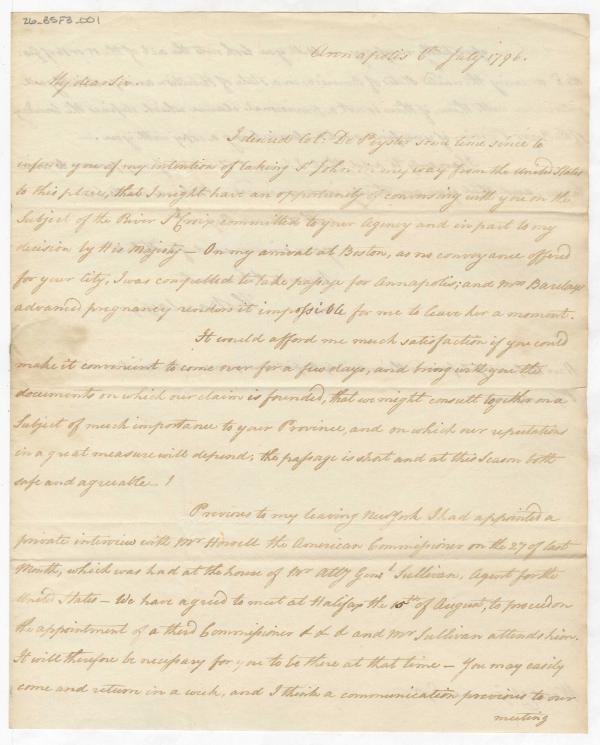 26_BSF3_001
Annapolis 6th July 1796.
My dear Sir.
I desired Col: De Peyster some time since to
inform you of my intention of taking St John in my way from the United States
to this place, that I might have an opportunity of conversing with you on the
Subject of the River St Croix committed to your Agency and in part to my
decision by His Majesty — On my arrival at Boston, as no conveyance offered
for your City, I was compelled to take passage for Annapolis; and Mrs Barclays
advanced pregnancy renders it impossible for me to leave her a moment.
It would afford me much satisfaction if you could
make it convenient to come over for a few days, and bring with you the
documents on which our claim is founded, that we might consult together on a
Subject of much importance to your Province, and on which our reputations
in a great measure will depend; the passage is short and at this Season both
safe and agreeable.
Previous to my leaving New York I had appointed a
private interview with Mr Howell the American Commissioner on the 27 of last
Month, which was had at the house of Mr Atty Genl Sullivan, Agent for the
United States — We have agreed to meet at Halifax the 15th of August, to proceed on
the appointment of a third Commissioner & & & and Mr Sullivan attends him.
It will therefore be necessary for you to be there at that time — You may easily
come and return in a week, and I think a communication previous to our
meeting